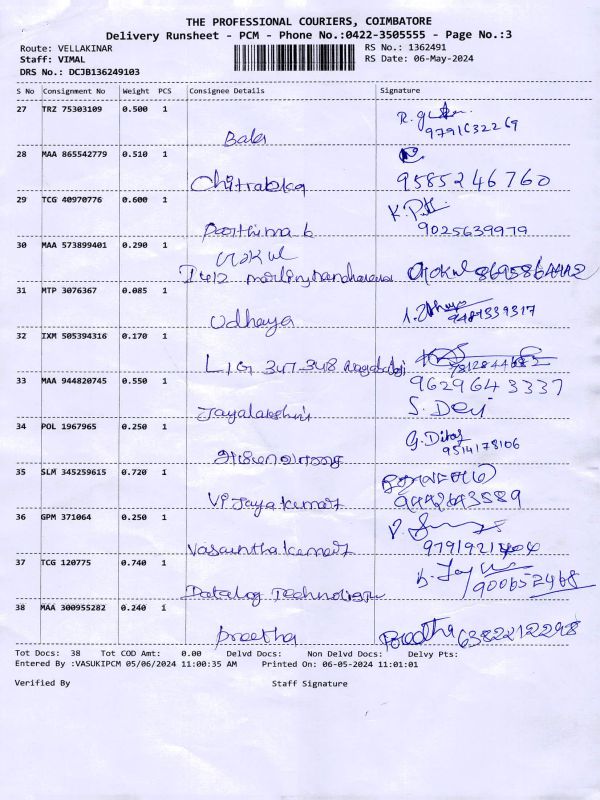 THE PROFESSIONAL COURIERS, COIMBATORE
Delivery Runsheet - PCM - Phone No.:0422-3505555 - Page No.:3
Route: VELLAKINAR RS No.: 1362491
Staff: VIMAL RS Date: 06-May-2024
DRS No.: DCJB136249103
S No Consignment No Weight PCS Consignee Details Signature
27 TRZ 75303109 0.500 1
9791632269
Bala
28 MAA 865542779 0.510 1
Chitrabka 9585246760
29 TCG 40970776 0.600 1
Parthima b 9025639979
30 MAA 573899401 0.290 1
Gokul
Gokul 8695864442
31 MTP 3076367 0.085 1
9487339317
Udhaya
32 IXM 505394316 0.170 1
LIG 347-348
33 MAA 944820745 0.550 1 9629643337
Jayalakshmi S. Devi
34 POL 1967965 0.250 1
9514178106
35 SLM 345259615 0.720 1
Vijayakumar 9442643589
36 GPM 371064 0.250 1
Vasanthakumar
37 TCG 120775 0.740 1
Datalog Technologie
38 MAA 300955282 0.240 1
Preetha Preetha 6382212298
Tot Docs: 38 Tot COD Amt: 0.00 Delvd Docs: Non Delvd Docs: Delvy Pts:
Entered By :VASUKIPCM 05/06/2024 11:00:35 AM Printed On: 06-05-2024 11:01:01
Verified By Staff Signature